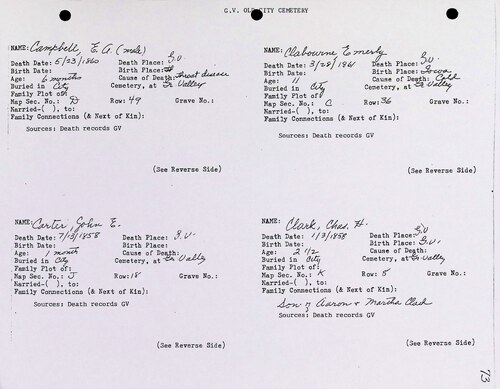 G.V. OLD CITY CEMETERY
NAME: Campbell, E. A. (male)
Death Date: 5/23/1860 Death Place: G.V.
Birth Date: Birth Place:
Age: 6 months Cause of Death: throat disease
Buried in City Cemetery, at Gr Valley
Family Plot of:
Map Sec. No.: D Row: 49 Grave No.:
Married-( ), to:
Family Connections (& Next of Kin):
Sources: Death records GV
(See Reverse Side)
NAME: Clabourne Emerly
Death Date: 3/28/1861 Death Place: G.V.
Birth Date: Birth Place: Iowa
Age: 11 Cause of Death: Cold
Buried in City Cemetery, at Gr Valley
Family Plot of:
Map Sec. No.: C Row: 36 Grave No.:
Married-( ), to:
Family Connections (& Next of Kin):
Sources: Death records GV
(See Reverse Side)
NAME: Carter, John E.
Death Date: 7/13/1858 Death Place: G.V.
Birth Date: Birth Place:
Age: 1 month Cause of Death:
Buried in City Cemetery, at Gr Valley
Family Plot of:
Map Sec. No.: J Row: 18 Grave No.:
Married-( ), to:
Family Connections (& Next of Kin):
Sources: Death records GV
(See Reverse Side)
NAME: Clark, Chas. H.
Death Date: 1/3/1858 Death Place: G.V.
Birth Date: Birth Place: G.V.
Age: 2 1/2 Cause of Death:
Buried in City Cemetery, at Gr Valley
Family Plot of:
Map Sec. No.: K Row: 5 Grave No.:
Married-( ), to:
Family Connections (& Next of Kin):
Son of Aaron & Martha Clark
Sources: Death records GV
(See Reverse Side)
73